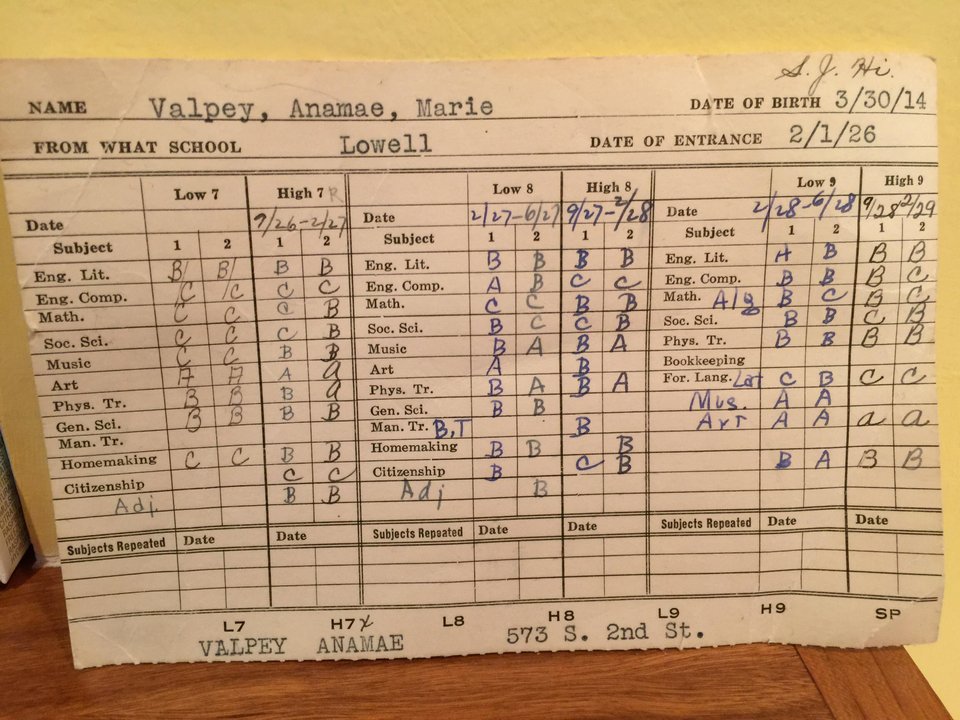 S. J. Hi.
NAME Valpey, Anamae, Marie DATE OF BIRTH 3/30/14
FROM WHAT SCHOOL Lowell DATE OF ENTRANCE 2/1/26
Low 7 High 7 R Low 8 High 8 Low 9 High 9
Date 9/26-2/27 Date 2/27-6/27 9/27-2/28 Date 2/28-6/28 9/28 2/29
Subject 1 2 1 2 Subject 1 2 1 2 Subject 1 2 1 2
Eng. Lit. B B B B Eng. Lit. B B B B Eng. Lit. A B B B
Eng. Comp. C C C C Eng. Comp. A B C C Eng. Comp. B B B C
Math. C C C B Math. C C B B Math. Alg B C B C
Soc. Sci. C C C B Soc. Sci. B C C B Soc. Sci. B B C B
Music C C B B Music B A B A Phys. Tr. B B B B
Art A A A a Art A B Bookkeeping
Phys. Tr. B B B a Phys. Tr. B A B A For. Lang. Lat C B C C
Gen. Sci. B B B B Gen. Sci. B B Mus. A A
Man. Tr. Man. Tr. B,T B Art A A a a
Homemaking C C B B Homemaking B B B
Citizenship C C Citizenship B C B B A B B
Adj B B Adj B
Subjects Repeated Date Date Subjects Repeated Date Date Subjects Repeated Date Date
L7 H7 L8 H8 L9 H9 SP
VALPEY ANAMAE 573 S. 2nd St.